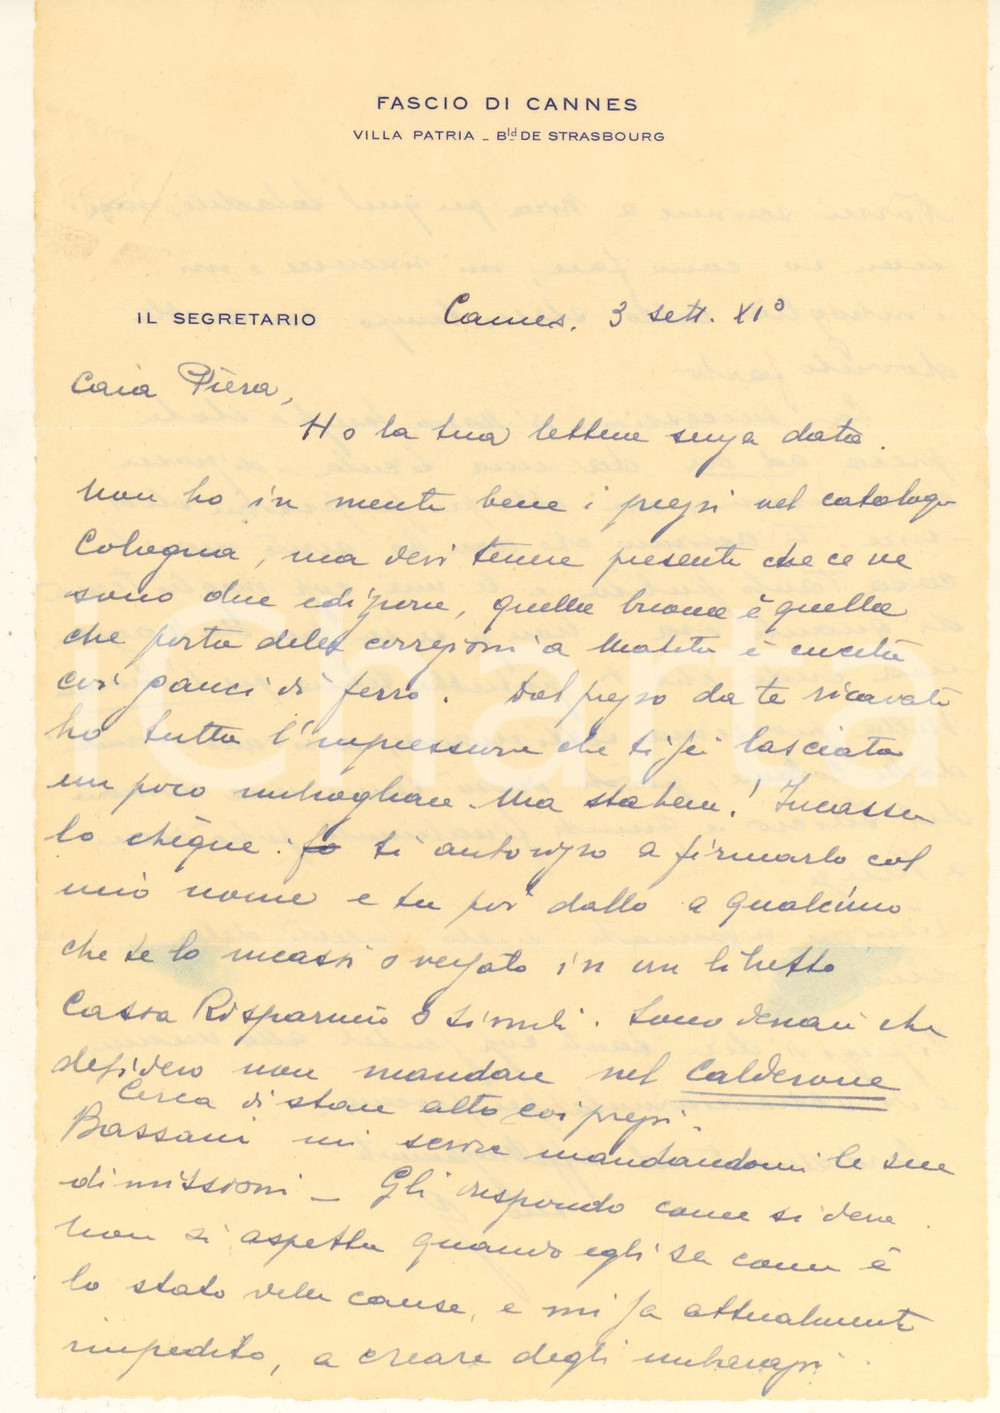 FASCIO DI CANNES
VILLA PATRIA - Bld DE STRASBOURG
IL SEGRETARIO
Cannes. 3 sett. XI°
Cara Piera,
Ho la tua lettera senza data.
Non ho in mente bene i prezzi nel catalogo
Cohegna, ma devi tenere presente che ce ne
sono due edizione, quella buona è quella
che porta delle correzioni a matita e cucita
coi ganci di ferro. Dal prezzo da te ricavato
ho tutta l'impressione che ti sei lasciata
un poco imbrogliare. Ma sta bene! Incassa
lo chèque: fo ti autorizzo a firmarlo col
mio nome e tu poi dallo a qualcuno
che te lo incassi o versato in un libretto
Cassa Risparmio o simili. Sono denari che
desidero non mandare nel Calderone
Cerca di stare alta coi prezzi.
Bassani mi scrive mandandomi le sue
dimissioni - Gli rispondo come si deve.
Non si aspetta quando egli sa come è
lo stato delle cause, e mi fa attualmente
impedito, a creare degli imbarazzi.